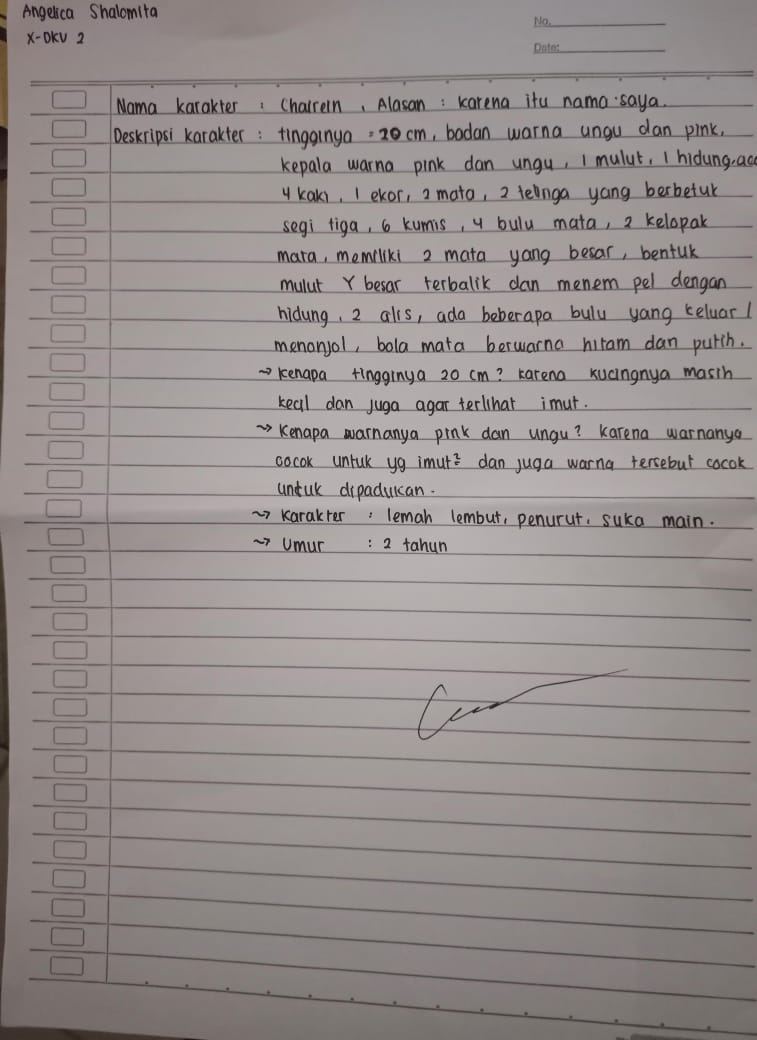 Angelica Shalomita
X-DKV 2
No.
Date:
Nama karakter : Chairein , Alasan : karena itu nama saya.
Deskripsi karakter : tingginya = 20 cm, badan warna ungu dan pink,
kepala warna pink dan ungu, 1 mulut, 1 hidung, ada
4 kaki, 1 ekor, 2 mata, 2 telinga yang berbetuk
segi tiga, 6 kumis, 4 bulu mata, 2 kelopak
mata, memiliki 2 mata yang besar, bentuk
mulut Y besar terbalik dan menem pel dengan
hidung, 2 alis, ada beberapa bulu yang keluar /
menonjol, bola mata berwarna hitam dan putih.
~> Kenapa tingginya 20 cm? karena kucingnya masih
kecil dan juga agar terlihat imut.
~> Kenapa warnanya pink dan ungu? karena warnanya
cocok untuk yg imut² dan juga warna tersebut cocok
untuk dipadukan.
~> Karakter : lemah lembut, penurut, suka main.
~> Umur : 2 tahun